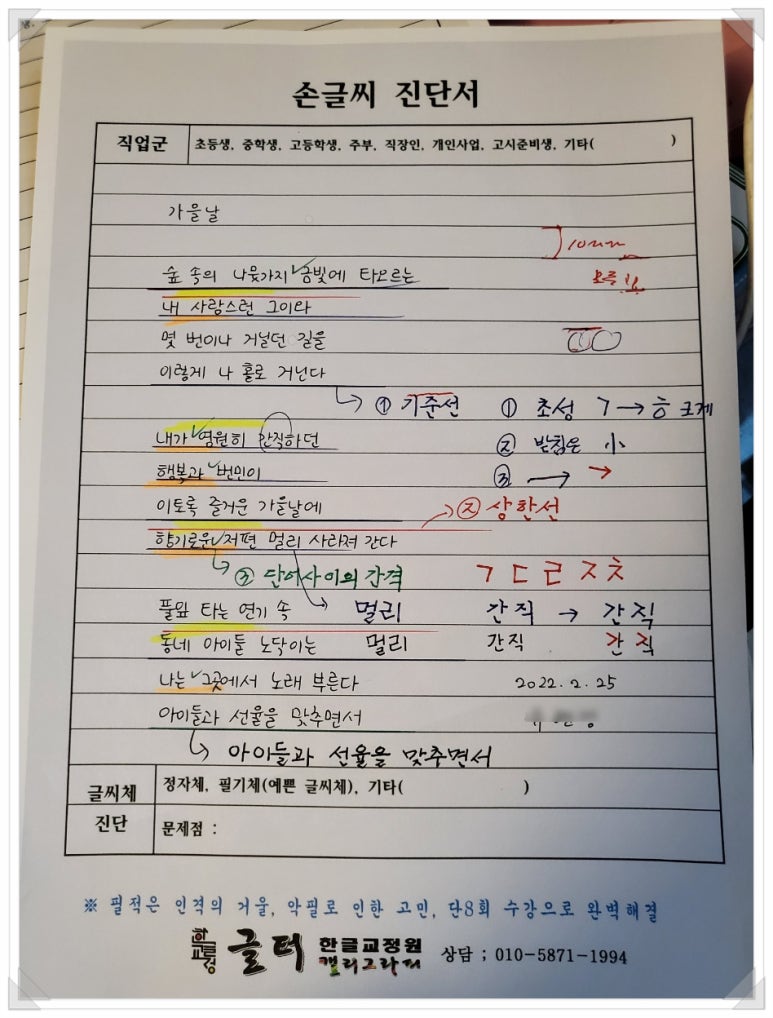 손글씨 진단서
직업군 초등생, 중학생, 고등학생, 주부, 직장인, 개인사업, 고시준비생, 기타( )
가을날
10mm
숲 속의 나뭇가지 금빛에 타오르는
내 사랑스런 그이와
몇 번이나 거닐던 길을
이렇게 나 홀로 거닌다
① 기준선 ① 초성 ㄱ→ㅎ 크게
내가 영원히 간직하던 ② 받침은 小
행복과 번민이 ③ → →
이토록 즐거운 가을날에 ② 상한선
향기로운 저편 멀리 사라져 간다
③ 단어사이의 간격 ㄱ ㄷ ㄹ ㅈ ㅊ
풀잎 타는 연기 속 멀리 간직 → 간직
동네 아이들 노닥이는 멀리 간직 간직
나는 그곳에서 노래 부른다 2022.2.25
아이들과 선율을 맞추면서
아이들과 선율을 맞추면서
글씨체 정자체, 필기체(예쁜 글씨체), 기타( )
진단 문제점 :
※ 필적은 인격의 거울, 악필로 인한 고민, 단8회 수강으로 완벽해결
한글교정 글터 한글교정원
캘리그라피 상담 ; 010-5871-1994